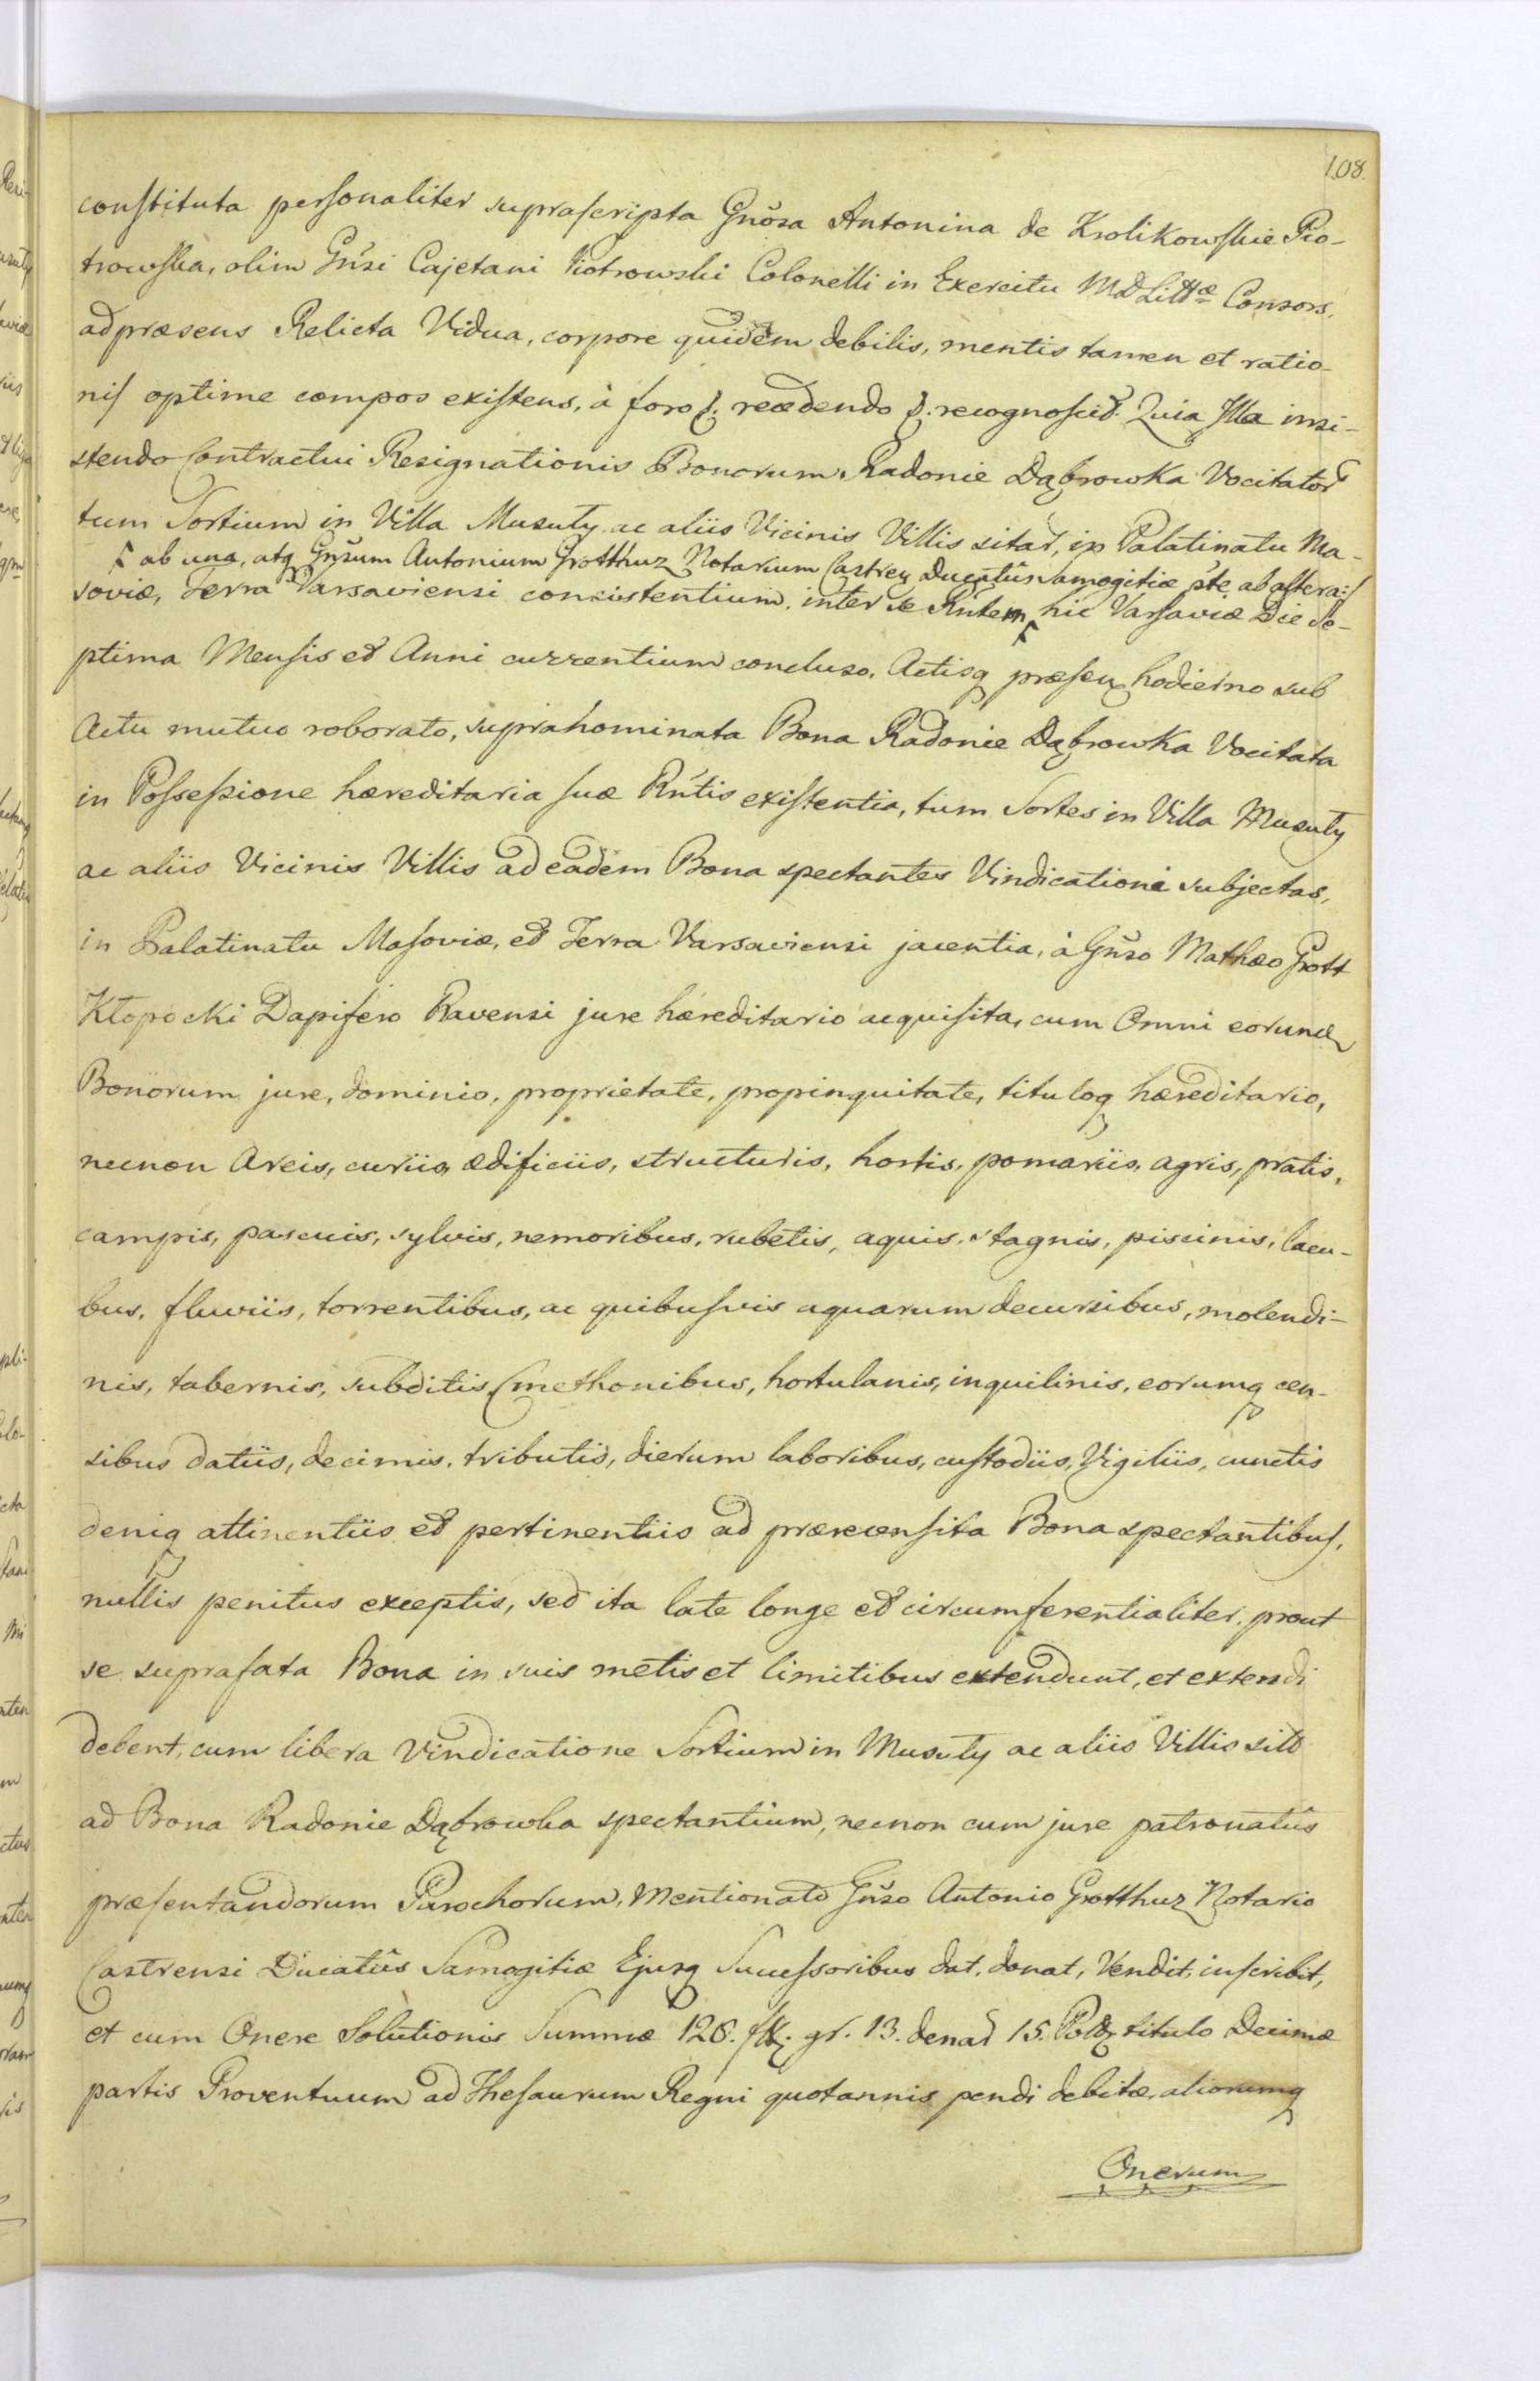 108.
constituta personaliter suprascripta Gnosa Antonina de Krolikowskie Pio-
trowska, olim Gnsi Cajetani Piotrowski Colonelli in Exercitu MD Littæ Consors,
ad præsens Relicta Vidua, corpore quidem debilis, mentis tamen et ratio-
nis optime compos existens, à foro &. recedendo &. recognoscit. Quia Illa insi-
stendo Contractui Resignationis Bonorum Radonie Dąbrowka Vocitator
tum Sortium in Villa Musuły ac aliis Vicinis Villis sitar, in Palatinatu Ma-
ab una, atq Gnsum Antonium Grotthuz Notarium Castren Ducatûs Samogitiæ pte ab altera:/
soviæ, Terra Varsaviensi consistentium, inter se Rntem hic Varsaviæ Die Se-
ptima Mensis et Anni currentium concluso, Actisq præsen hodierno sub
Actu mutuo roborato, supranominata Bona Radonie Dąbrowka Vocitata
in Possessione hæreditaria suæ Rntis existentia, tum Sortes in Villa Musuły
ac aliis Vicinis Villis ad eadem Bona spectantes Vindicationi subjectas,
in Palatinatu Masoviæ, et Terra Varsaviensi jacentia, à Gnso Mathæo Grott
Kłopocki Dapifero Ravensi jure hæreditario acquisita, cum Omni eorund
Bonorum jure, dominio, proprietate, propinquitate, tituloq hæreditario,
necnon Areis, curiis, ædificiis, structuris, hortis, pomariis, agris, pratis,
campis, pascuis, sylvis, nemoribus, rubetis, aquis, stagnis, piscinis, lacu-
bus, fluviis, torrentibus, ac quibusvis aquarum decursibus, molendi-
nis, tabernis, subditis Cmethonibus, hortulanis, inquilinis, eorumq cen-
sibus datiis, decimis, tributis, dierum laboribus, custodiis, Vigiliis, cunctis
deniq attinentiis et pertinentiis ad præcensita Bona spectantibus,
nullis penitus exceptis, sed ita late longe et circumferentialiter, prout
se suprafata Bona in suis metis et limitibus extendunt, et extendi
debent, cum libera Vindicatione Sortium in Musuły ac aliis Villis sit
ad Bona Radonie Dąbrowka spectantium, necnon cum jure patronatûs
præsentandorum Parochorum, Mentionato Gnso Antonio Grotthuz Notario
Castrensi Ducatûs Samogitiæ Ejusq Successoribus dat, donat, Vendit, inscribit,
et cum Onere Solutionis Summæ 126. fl. gr. 13. denar 15. Pol titulo Decimæ
partis Proventuum ad Thesaurum Regni quotannis pendi debitæ, aliorumq
Onerum